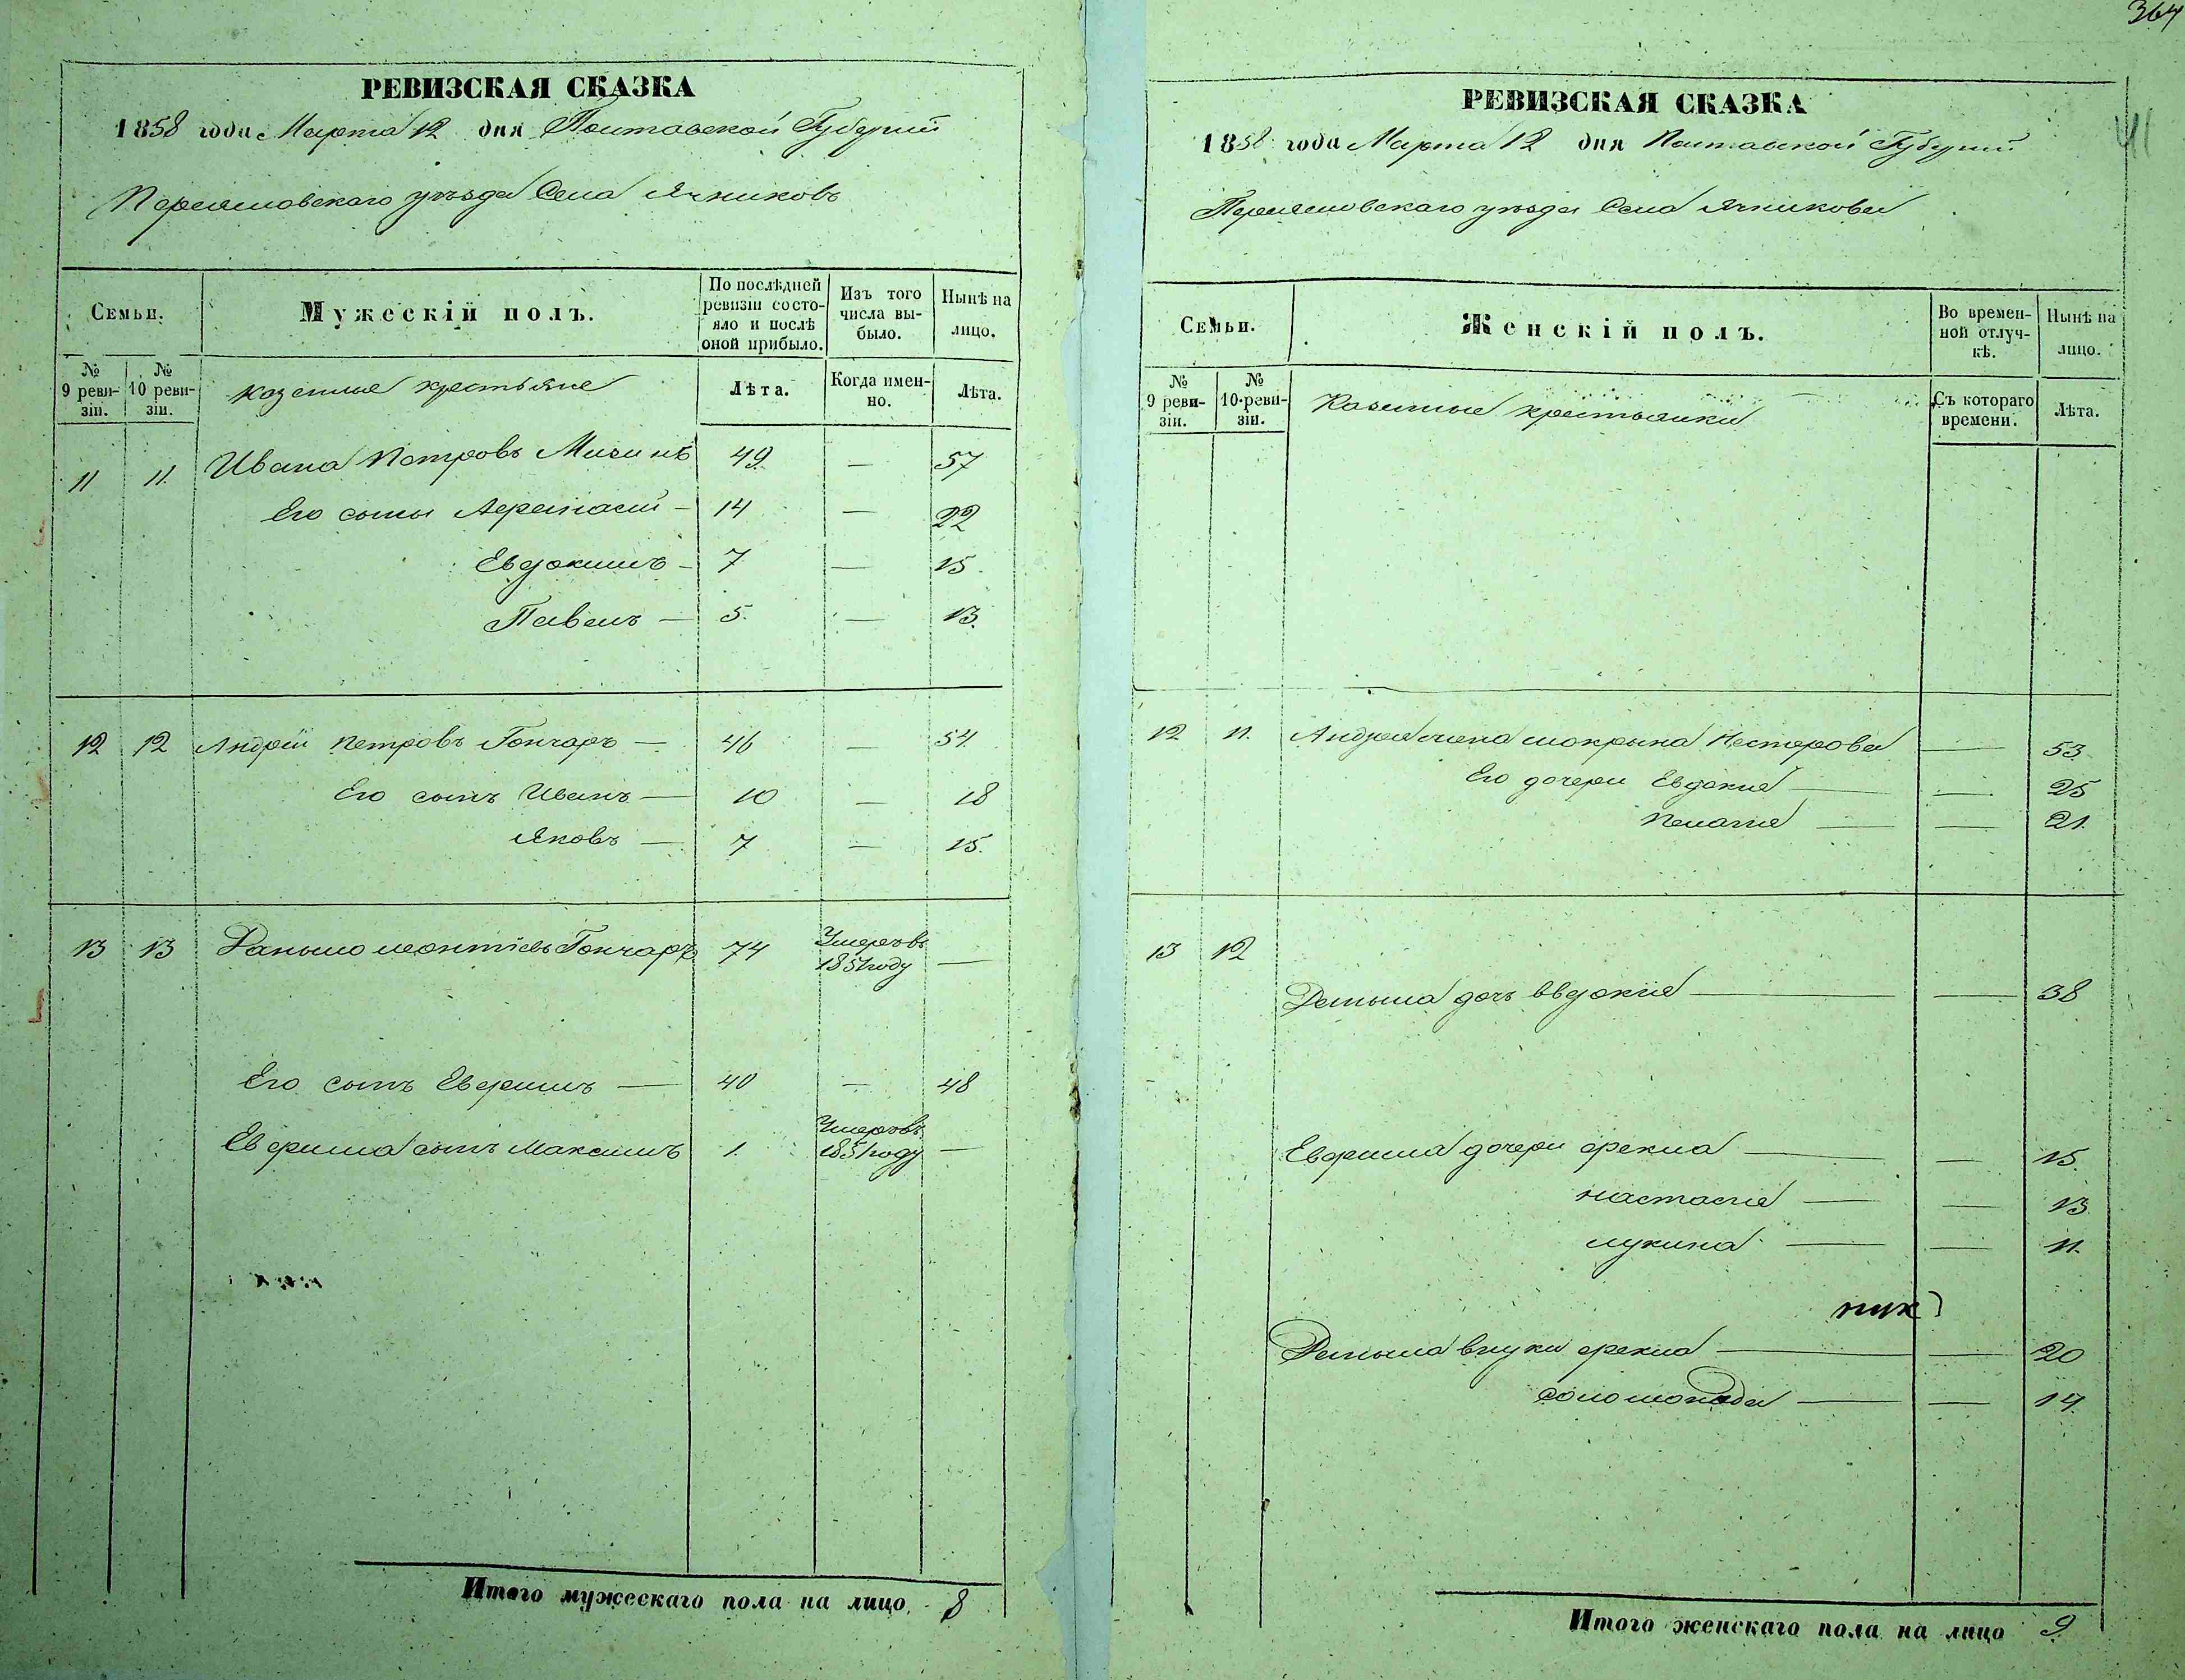 364
41
РЕВИЗСКАЯ СКАЗКА
1858 года Марта 12 дня Полтавской Губернии
Переяславскаго уѣзда Села Ячниковъ
Семьи.
Мужескій полъ.
По послѣдней ревизіи состояло и послѣ оной прибыло.
Изъ того числа выбыло.
Нынѣ на лицо.
№ 9 ревизіи.
№ 10 ревизіи.
Казенные крестьяне
Лѣта.
Когда именно.
Лѣта.
11 11. Ивана Петровъ 49. — 57
Его сыны Афанасій — 14 — 22
Евдокимъ — 7 — 15
Павелъ — 5. — 13.
12 12 Андрей Петровъ Гончаръ — 46 — 54
Его сынъ Иванъ — 10 — 18
Яковъ — 7 — 15.
13 13 Даныло леонтіевъ Гончаръ 74 Умеръ въ 1851 году —
Его сынъ Евфимъ — 40 — 48
Евфима сынъ Максимъ 1. Умеръ въ 1851 году —
Итого мужескаго пола на лицо 8
РЕВИЗСКАЯ СКАЗКА
1858 года Марта 12 дня Полтавской Губернии
Переяславскаго уѣзда Села Ячникова
Семьи.
Женскій полъ.
Во временной отлучкѣ.
Нынѣ на лицо.
№ 9 ревизіи.
№ 10 ревизіи.
Казенные крестьянки
Съ котораго времени.
Лѣта.
12 11. Андрея жена мокрына Нестерова — 53.
Его дочери Евдокия — — 25
Пелагия — — 21.
13 12
Данила дочь Евдокія — — 38
Евфима дочери фекла — — 15.
настасия — — 13
лукина — — 11.
Данила внуки фекла — — 20
соломонида — — 14
Итого женскаго пола на лицо 9.